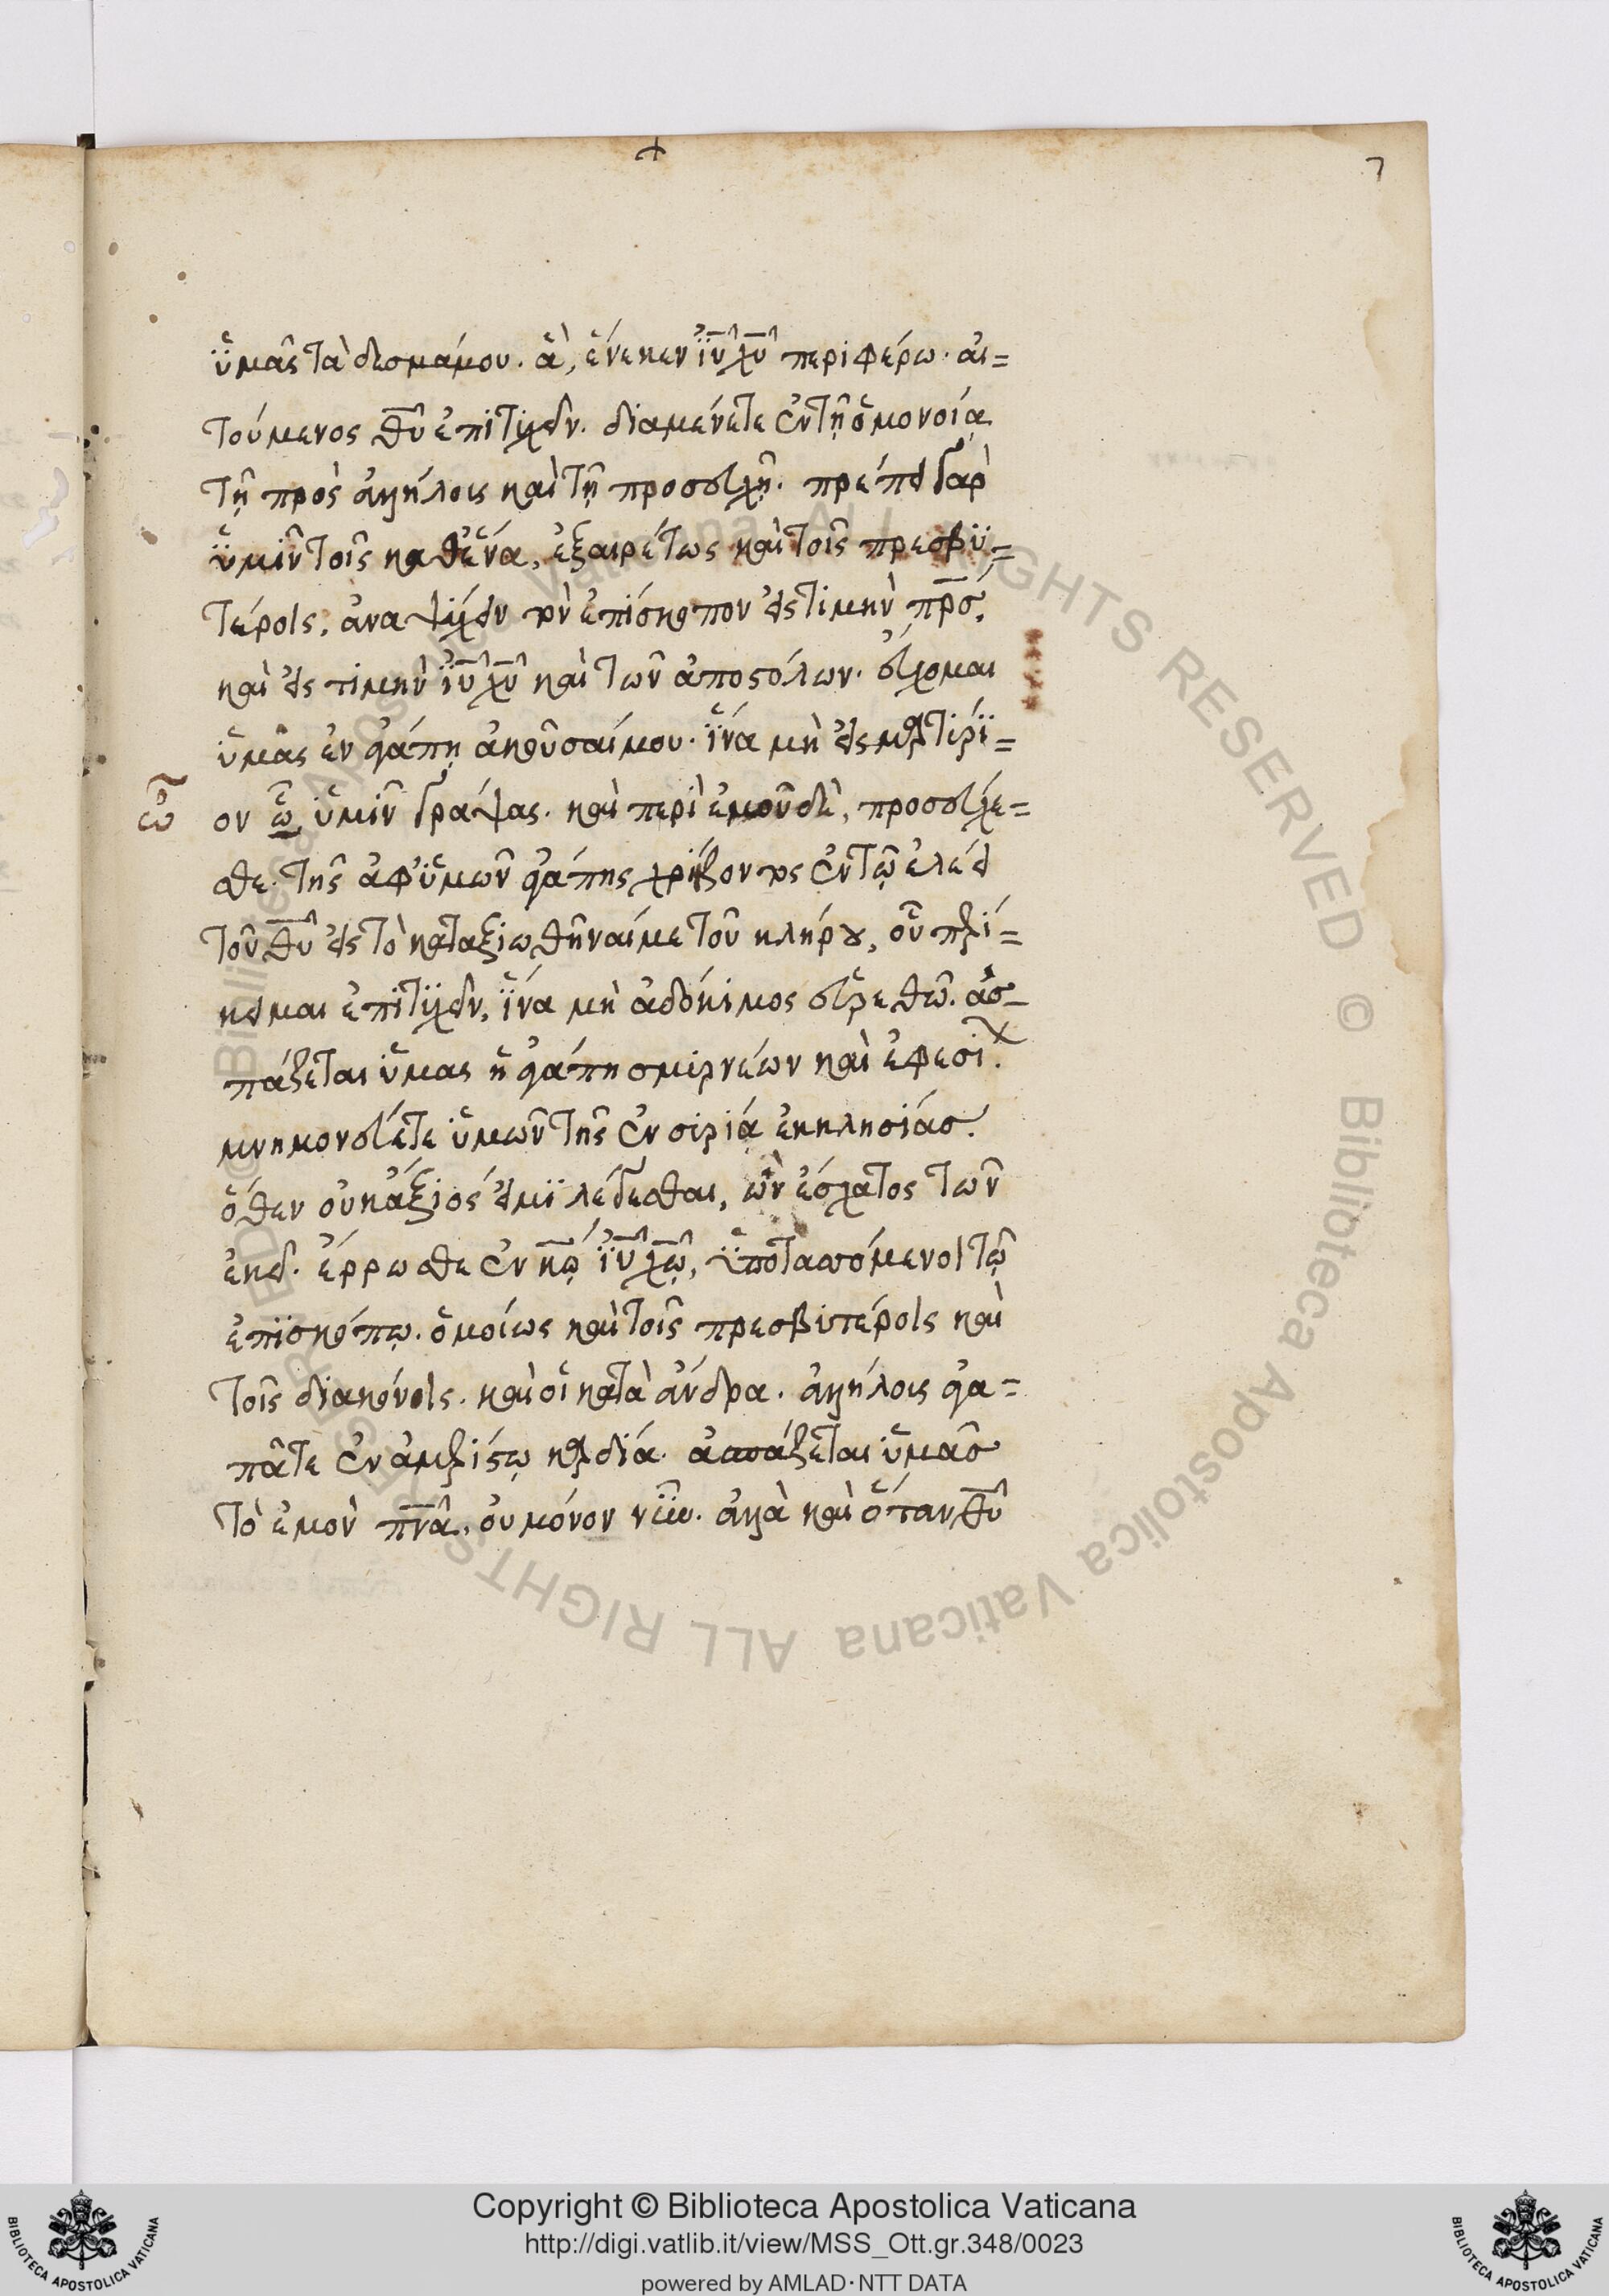 7
ὑμᾶς τὰ δεσμά μου. ἃ, ἕνεκεν ἰῦ χῦ περιφέρω. αἰ=
τούμενος θῦ ἐπιτυχεῖν. διαμένετε ἐν τῇ ὁμονοίᾳ
τῇ πρὸς ἀλλήλοις καὶ τῇ προσευχῇ. πρέπει γὰρ
ὑμῖν τοῖς καθ' ἕνα, ἐξαιρέτως καὶ τοῖς πρεσβυ=
τέροις, ἀναψύχειν τὸν ἐπίσκοπον εἰς τιμὴν πρσ,
καὶ εἰς τιμὴν ἰῦ χῦ καὶ τῶν ἀποστόλων. εὔχομαι
ὑμᾶς ἐν ἀγάπῃ ἀκοῦσαί μου. ἵνα μὴ εἰς μαρτίρι=
ον ὦ ὑμῖν γράψας. καὶ περὶ ἐμοῦ δὲ, προσεύχε=
ὦ
σθε. τῆς ἀφ' ὑμῶν ἀγάπης χρήζοντος ἐν τῷ ἐλέει
τοῦ θῦ εἰς τὸ καταξιωθῆναί με τοῦ κλήρου, οὗ περί=
κειμαι ἐπιτυχεῖν, ἵνα μὴ ἀδόκιμος εὑρεθῶ. ἀσ-
πάζεται ὑμας ἡ ἀγάπη σμιρνέων καὶ ἐφεσίων.
μνημονεύετε ὑμῶν τῆς ἐν σιρίᾳ ἐκκλησίασ.
ὅθεν οὐκ ἄξιός εἰμι λέγεσθαι, ὢν ἔσχατος τῶν
ἐκεῖ. ἔρρωσθε ἐν κῷ ἰῦ χῷ, ὑποτασσόμενοι τῷ
ἐπισκόπῳ. ὁμοίως καὶ τοῖς πρεσβιτέροις καὶ
τοῖς διακόνοις. καὶ οἱ κατὰ ἄνδρα. ἀλλήλοις ἀγα=
πᾶτε ἐν ἀμερίστῳ καρδίᾳ. ἀσπάζεται ὑμᾶσ
τὸ ἐμὸν πνᾶ. οὐ μόνον νῦν. ἀλλὰ καὶ ὅταν θῦ
Copyright © Biblioteca Apostolica Vaticana
http://digi.vatlib.it/view/MSS_Ott.gr.348/0023
powered by AMLAD·NTT DATA
BIBLIOTECA APOSTOLICA VATICANA
BIBLIOTECA APOSTOLICA VATICANA
© Biblioteca Apostolica Vaticana ALL RIGHTS RESERVED © Biblioteca Apostolica Vaticana ALL RIGHTS RESERVED